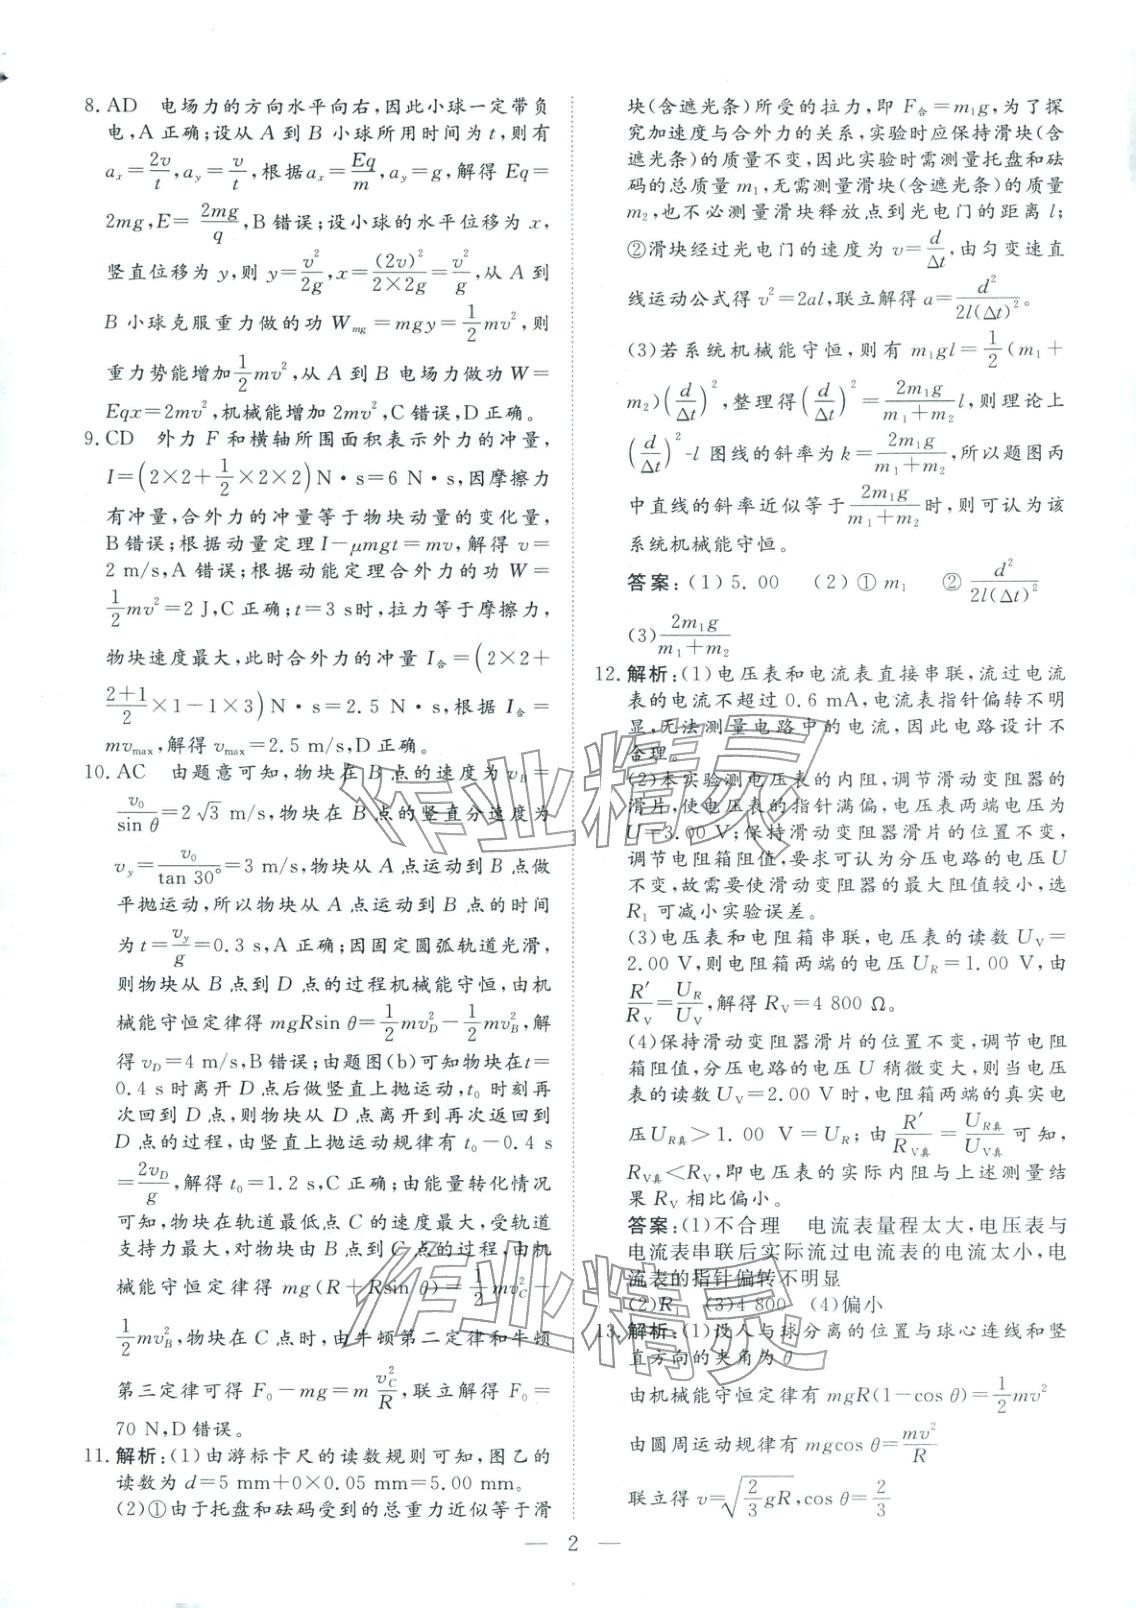 8. AD　电场力的方向水平向右,因此小球一定带负
电,A 正确;设从 A 到 B 小球所用时间为 t,则有
aₓ=2v/t,a_y=v/t,根据 aₓ=Eq/m,a_y=g,解得 Eq=
2mg,E=2mg/q,B 错误;设小球的水平位移为 x,
竖直位移为 y,则 y=v²/2g,x=(2v)²/2×2g=v²/g,从 A 到
B 小球克服重力做的功 W_mg=mgy=1/2mv²,则
重力势能增加1/2mv²,从 A 到 B 电场力做功 W=
Eqx=2mv²,机械能增加 2mv²,C 错误,D 正确。
9. CD　外力 F 和横轴所围面积表示外力的冲量,
I=(2×2+1/2×2×2)N·s=6 N·s,因摩擦力
有冲量,合外力的冲量等于物块动量的变化量,
B 错误;根据动量定理 I-μmgt=mv,解得 v=
2 m/s,A 错误;根据动能定理合外力的功 W=
1/2mv²=2 J,C 正确;t=3 s时,拉力等于摩擦力,
物块速度最大,此时合外力的冲量 I合=(2×2+
2+1/2×1-1×3)N·s=2.5 N·s,根据 I合=
mv_max,解得 v_max=2.5 m/s,D 正确。
10. AC　由题意可知,物块在 B 点的速度为 v_B=
v₀/sin θ=2√3 m/s,物块在 B 点的竖直分速度为
v_y=v₀/tan 30°=3 m/s,物块从 A 点运动到 B 点做
平抛运动,所以物块从 A 点运动到 B 点的时间
为 t=v_y/g=0.3 s,A 正确;因固定圆弧轨道光滑,
则物块从 B 点到 D 点的过程机械能守恒,由机
械能守恒定律得 mgRsin θ=1/2mv_D²-1/2mv_B²,解
得 v_D=4 m/s,B 错误;由题图(b)可知物块在t=
0.4 s时离开 D 点后做竖直上抛运动,t₀ 时刻再
次回到 D 点,则物块从 D 点离开到再次返回到
D 点的过程,由竖直上抛运动规律有 t₀-0.4 s
=2v_D/g,解得 t₀=1.2 s,C 正确;由能量转化情况
可知,物块在轨道最低点 C 的速度最大,受轨道
支持力最大,对物块由 B 点到 C 点的过程,由机
械能守恒定律得 mg(R+Rsin θ)=1/2mv_C²-
1/2mv_B²,物块在 C 点时,由牛顿第二定律和牛顿
第三定律可得 F₀-mg=m v_C²/R,联立解得 F₀=
70 N,D 错误。
11. 解析:(1)由游标卡尺的读数规则可知,图乙的
读数为 d=5 mm+0×0.05 mm=5.00 mm。
(2)①由于托盘和砝码受到的总重力近似等于滑
块(含遮光条)所受的拉力,即 F合=m₁g,为了探
究加速度与合外力的关系,实验时应保持滑块(含
遮光条)的质量不变,因此实验时需测量托盘和砝
码的总质量 m₁,无需测量滑块(含遮光条)的质量
m₂,也不必测量滑块释放点到光电门的距离 l;
②滑块经过光电门的速度为 v=d/Δt,由匀变速直
线运动公式得 v²=2al,联立解得 a=d²/2l(Δt)²。
(3)若系统机械能守恒,则有 m₁gl=1/2(m₁+
m₂)(d/Δt)²,整理得(d/Δt)²=2m₁g/m₁+m₂ l,则理论上
(d/Δt)²-l 图线的斜率为 k=2m₁g/m₁+m₂,所以题图丙
中直线的斜率近似等于2m₁g/m₁+m₂时,则可认为该
系统机械能守恒。
答案:(1)5.00　(2)①m₁　②d²/2l(Δt)²
(3)2m₁g/m₁+m₂
12. 解析:(1)电压表和电流表直接串联,流过电流
表的电流不超过 0.6 mA,电流表指针偏转不明
显,无法测量电路中的电流,因此电路设计不
合理。
(2)本实验测电压表的内阻,调节滑动变阻器的
滑片,使电压表的指针满偏,电压表两端电压为
U=3.00 V;保持滑动变阻器滑片的位置不变,
调节电阻箱阻值,要求可认为分压电路的电压 U
不变,故需要使滑动变阻器的最大阻值较小,选
R₁ 可减小实验误差。
(3)电压表和电阻箱串联,电压表的读数 U_V=
2.00 V,则电阻箱两端的电压 U_R=1.00 V,由
R′/R_V=U_R/U_V,解得 R_V=4 800 Ω。
(4)保持滑动变阻器滑片的位置不变,调节电阻
箱阻值,分压电路的电压 U 稍微变大,则当电压表
的读数 U_V=2.00 V时,电阻箱两端的真实电
压U_R真>1.00 V=U_R;由R′/R_V真=U_R真/U_V真可知,
R_V真<R_V,即电压表的实际内阻与上述测量结
果 R_V 相比偏小。
答案:(1)不合理　电流表量程太大,电压表与
电流表串联后实际流过电流表的电流太小,电
流表的指针偏转不明显
(2)R₁　(3)4 800　(4)偏小
13. 解析:(1)设人与球分离的位置与球心连线和竖
直方向的夹角为 θ
由机械能守恒定律有 mgR(1-cos θ)=1/2mv²
由圆周运动规律有 mgcos θ=mv²/R
联立得 v=√(2/3 gR),cos θ=2/3
— 2 —
作业精灵
作业精灵